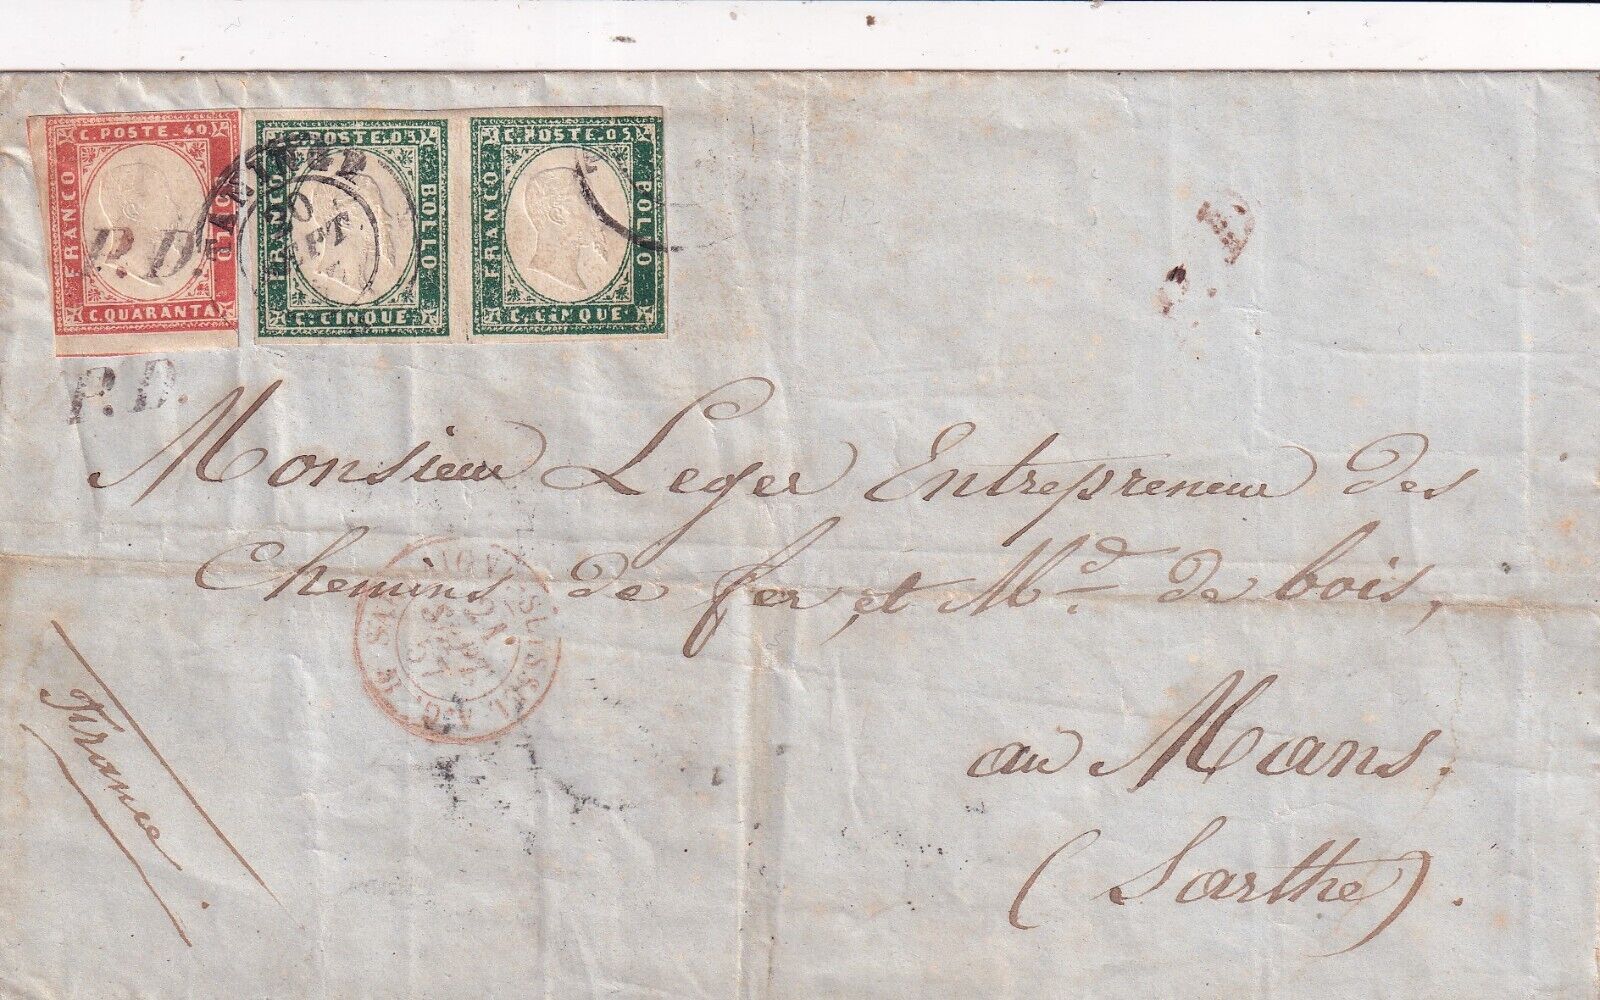 C. POSTE. 40
FRANCO
BOLLO
C. QUARANTA
C. POSTE. 05
FRANCO
BOLLO
C. CINQUE
C. POSTE. 05
FRANCO
BOLLO
C. CINQUE
20
SEPT
P.D.
P.D.
P.D.
Monsieur Leger Entrepreneur des
Chemins de fer, et Md. de bois,
au Mans.
(Sarthe).
France
21
SEPT
57